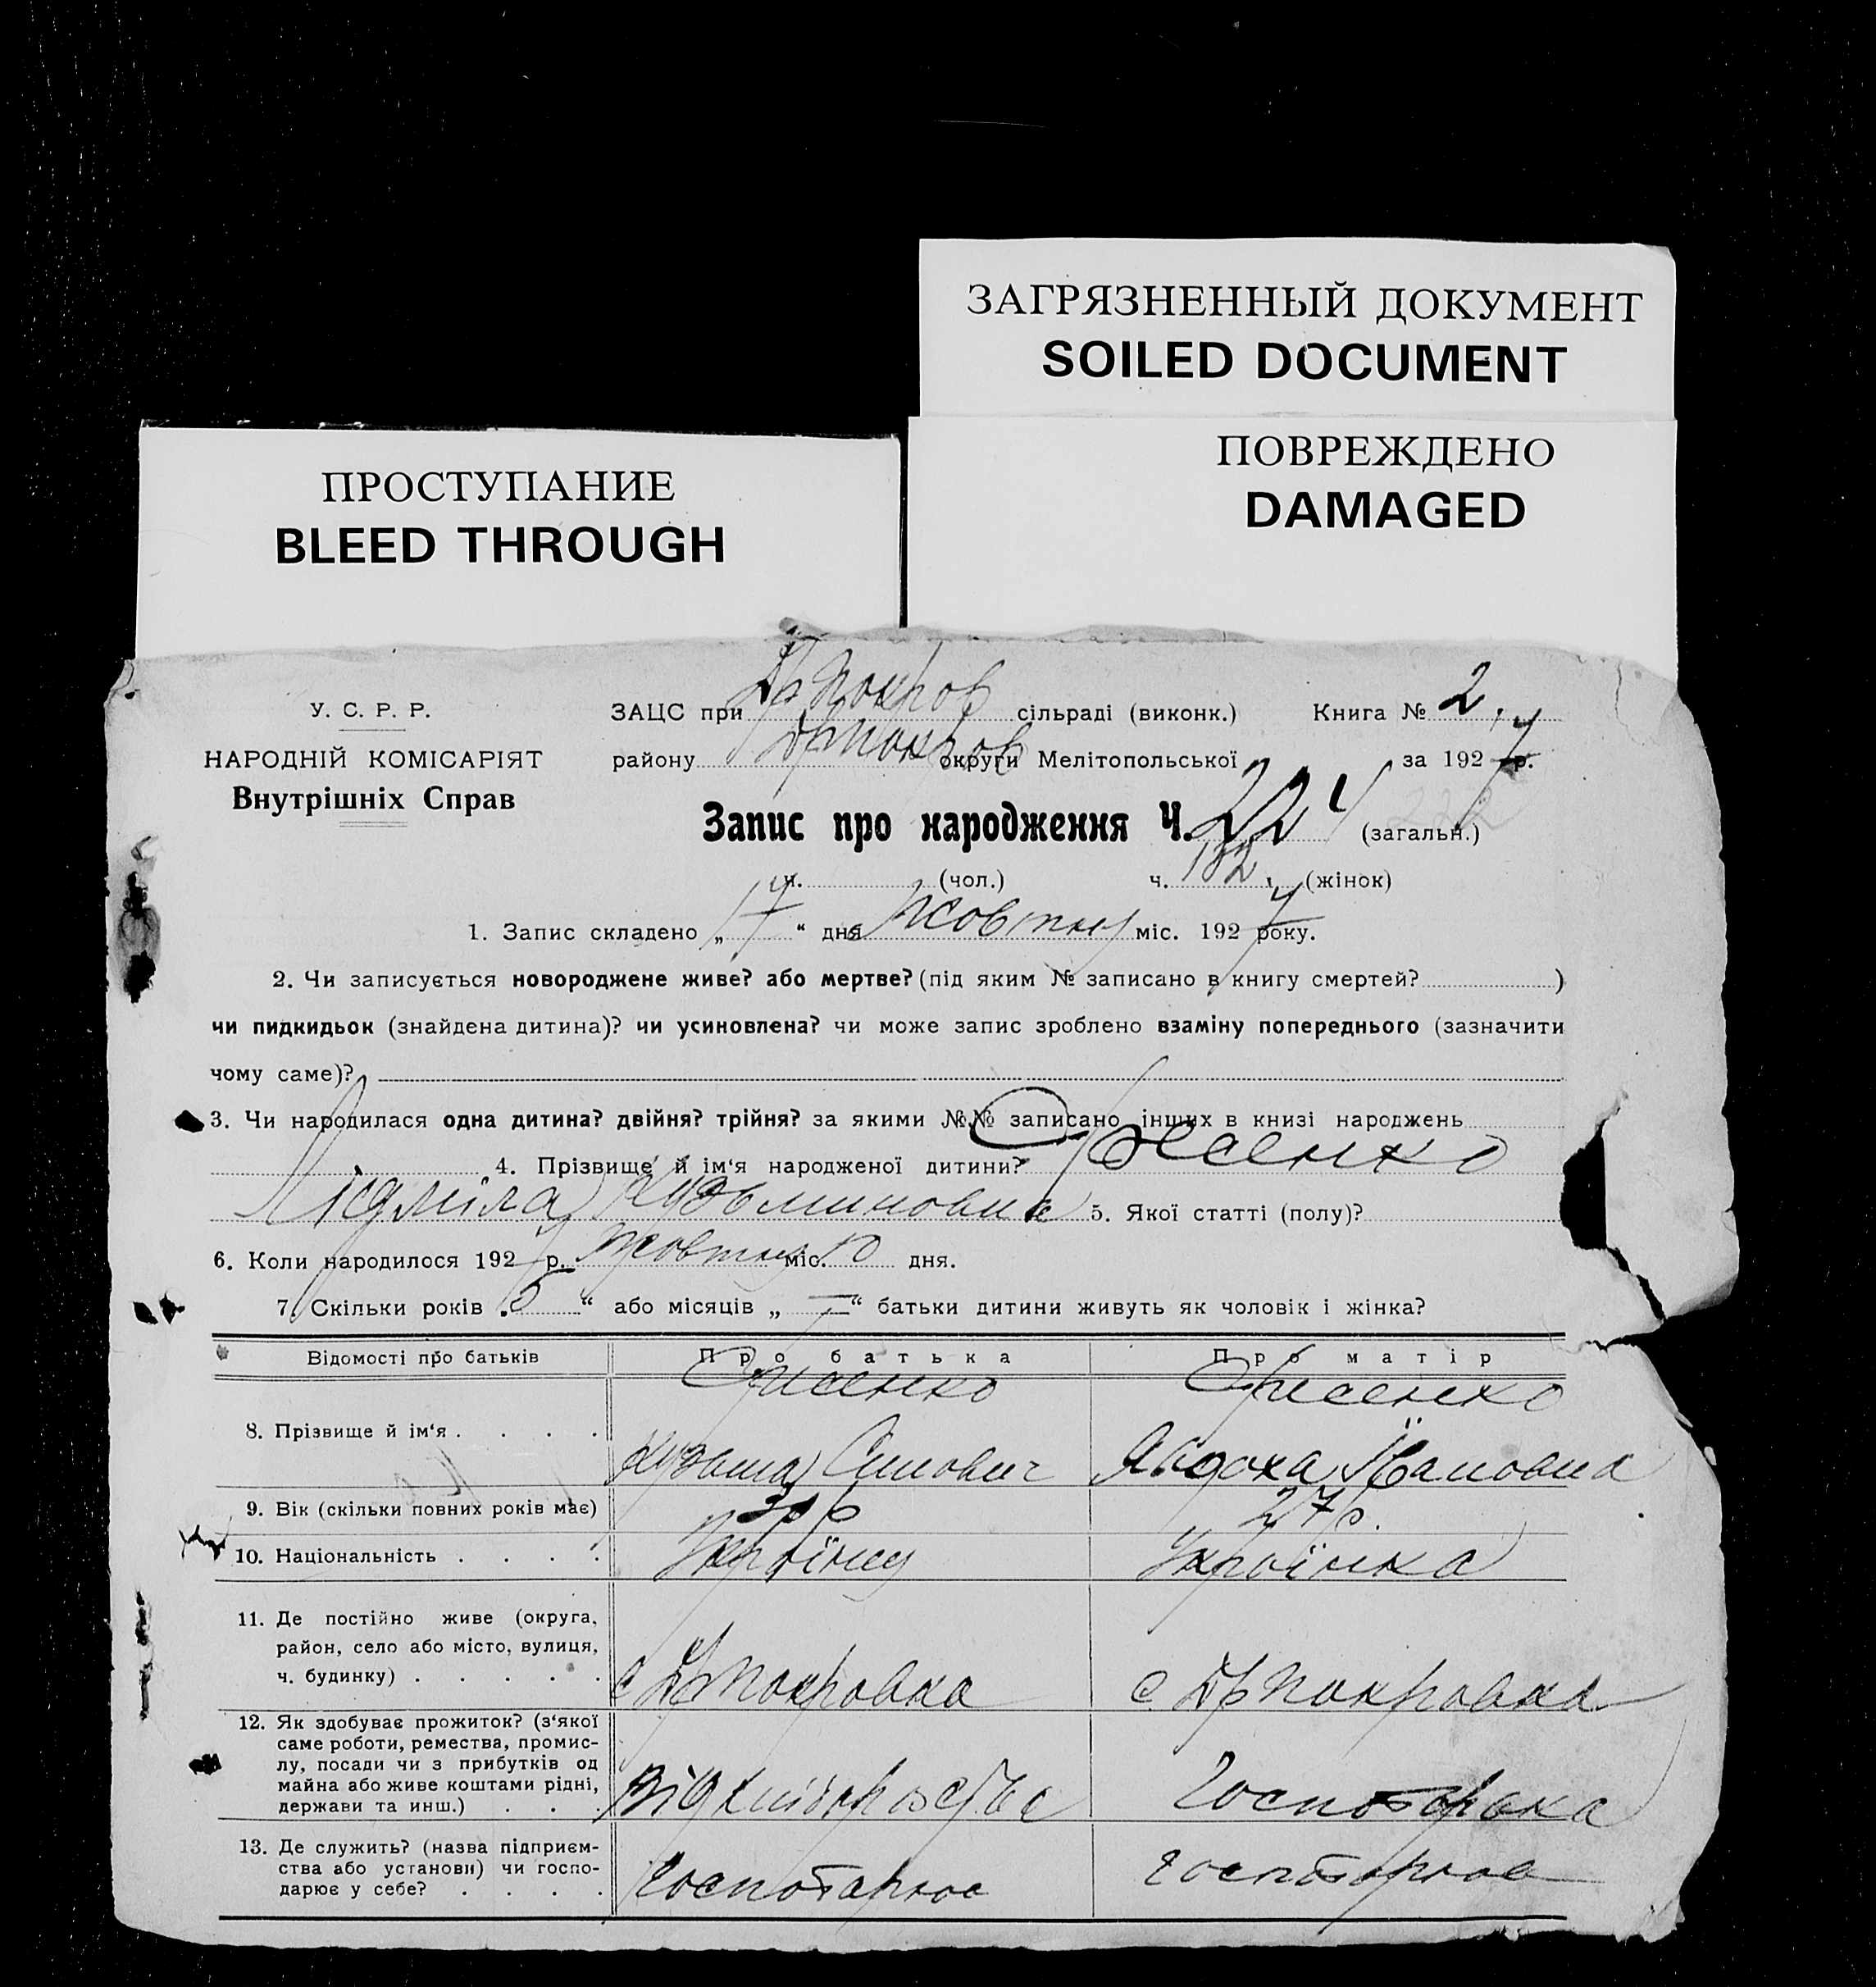 ЗАГРЯЗНЕННЫЙ ДОКУМЕНТ
SOILED DOCUMENT
ПОВРЕЖДЕНО
DAMAGED
ПРОСТУПАНИЕ
BLEED THROUGH
У. С. Р. Р.
НАРОДНІЙ КОМІСАРІЯТ
Внутрішніх Справ
ЗАЦС при Др Покров сільраді (виконк.) Книга № 2.
району Др Покров округи Мелітопольської за 1927 р.
Запис про народження Ч. 224 (загальн.)
222
ч. (чол.) ч. 132 (жінок)
1. Запис складено „17“ дня Жовтня міс. 1927 року.
2. Чи записується новороджене живе? або мертве? (під яким № записано в книгу смертей? )
чи пидкидьок (знайдена дитина)? чи усиновлена? чи може запис зроблено взаміну попереднього (зазначити
чому саме)?
3. Чи народилася одна дитина? двійня? трійня? за якими №№ записано інших в книзі народжень
4. Прізвище й ім‘я народженої дитини?
Кузьминовна 5. Якої статті (полу)?
6. Коли народилося 1927 р. Жовтня міс. 10 дня.
7. Скільки років „5“ або місяців „—“ батьки дитини живуть як чоловік і жінка?
Відомості про батьків Про батька Про матір
8. Прізвище й ім‘я . . . .
Кузьма Явдоха Ивановна
9. Вік (скільки повних років має) 27 р.
10. Національність . . . . Українец Українка
11. Де постійно живе (округа,
район, село або місто, вулиця,
ч. будинку) . . . . . с Др Покровка с Др Покровка
12. Як здобуває прожиток? (з‘якої
саме роботи, ремества, промис-
лу, посади чи з прибутків од
майна або живе коштами рідні,
держави та инш.) . . . Від
13. Де служить? (назва підприєм-
ства або установи) чи госпо-
дарює у себе? . . . .